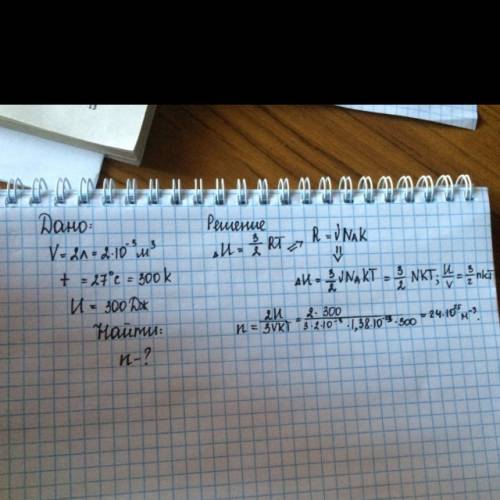 Дано:
V = 2л = 2·10⁻³ м³
t = 27°c = 300 k
U = 300 Дж
Найти:
n - ?
Решение
ΔU = 3/2 RT ⇒ R = √NAK
⇓
ΔU = 3/2 √NAKT = 3/2 NKT; U/V = 3/2 nkT
n = 2U/3VKT = 2·300/3·2·10⁻³·1,38·10⁻²³·300 = 24·10²⁵ м⁻³.